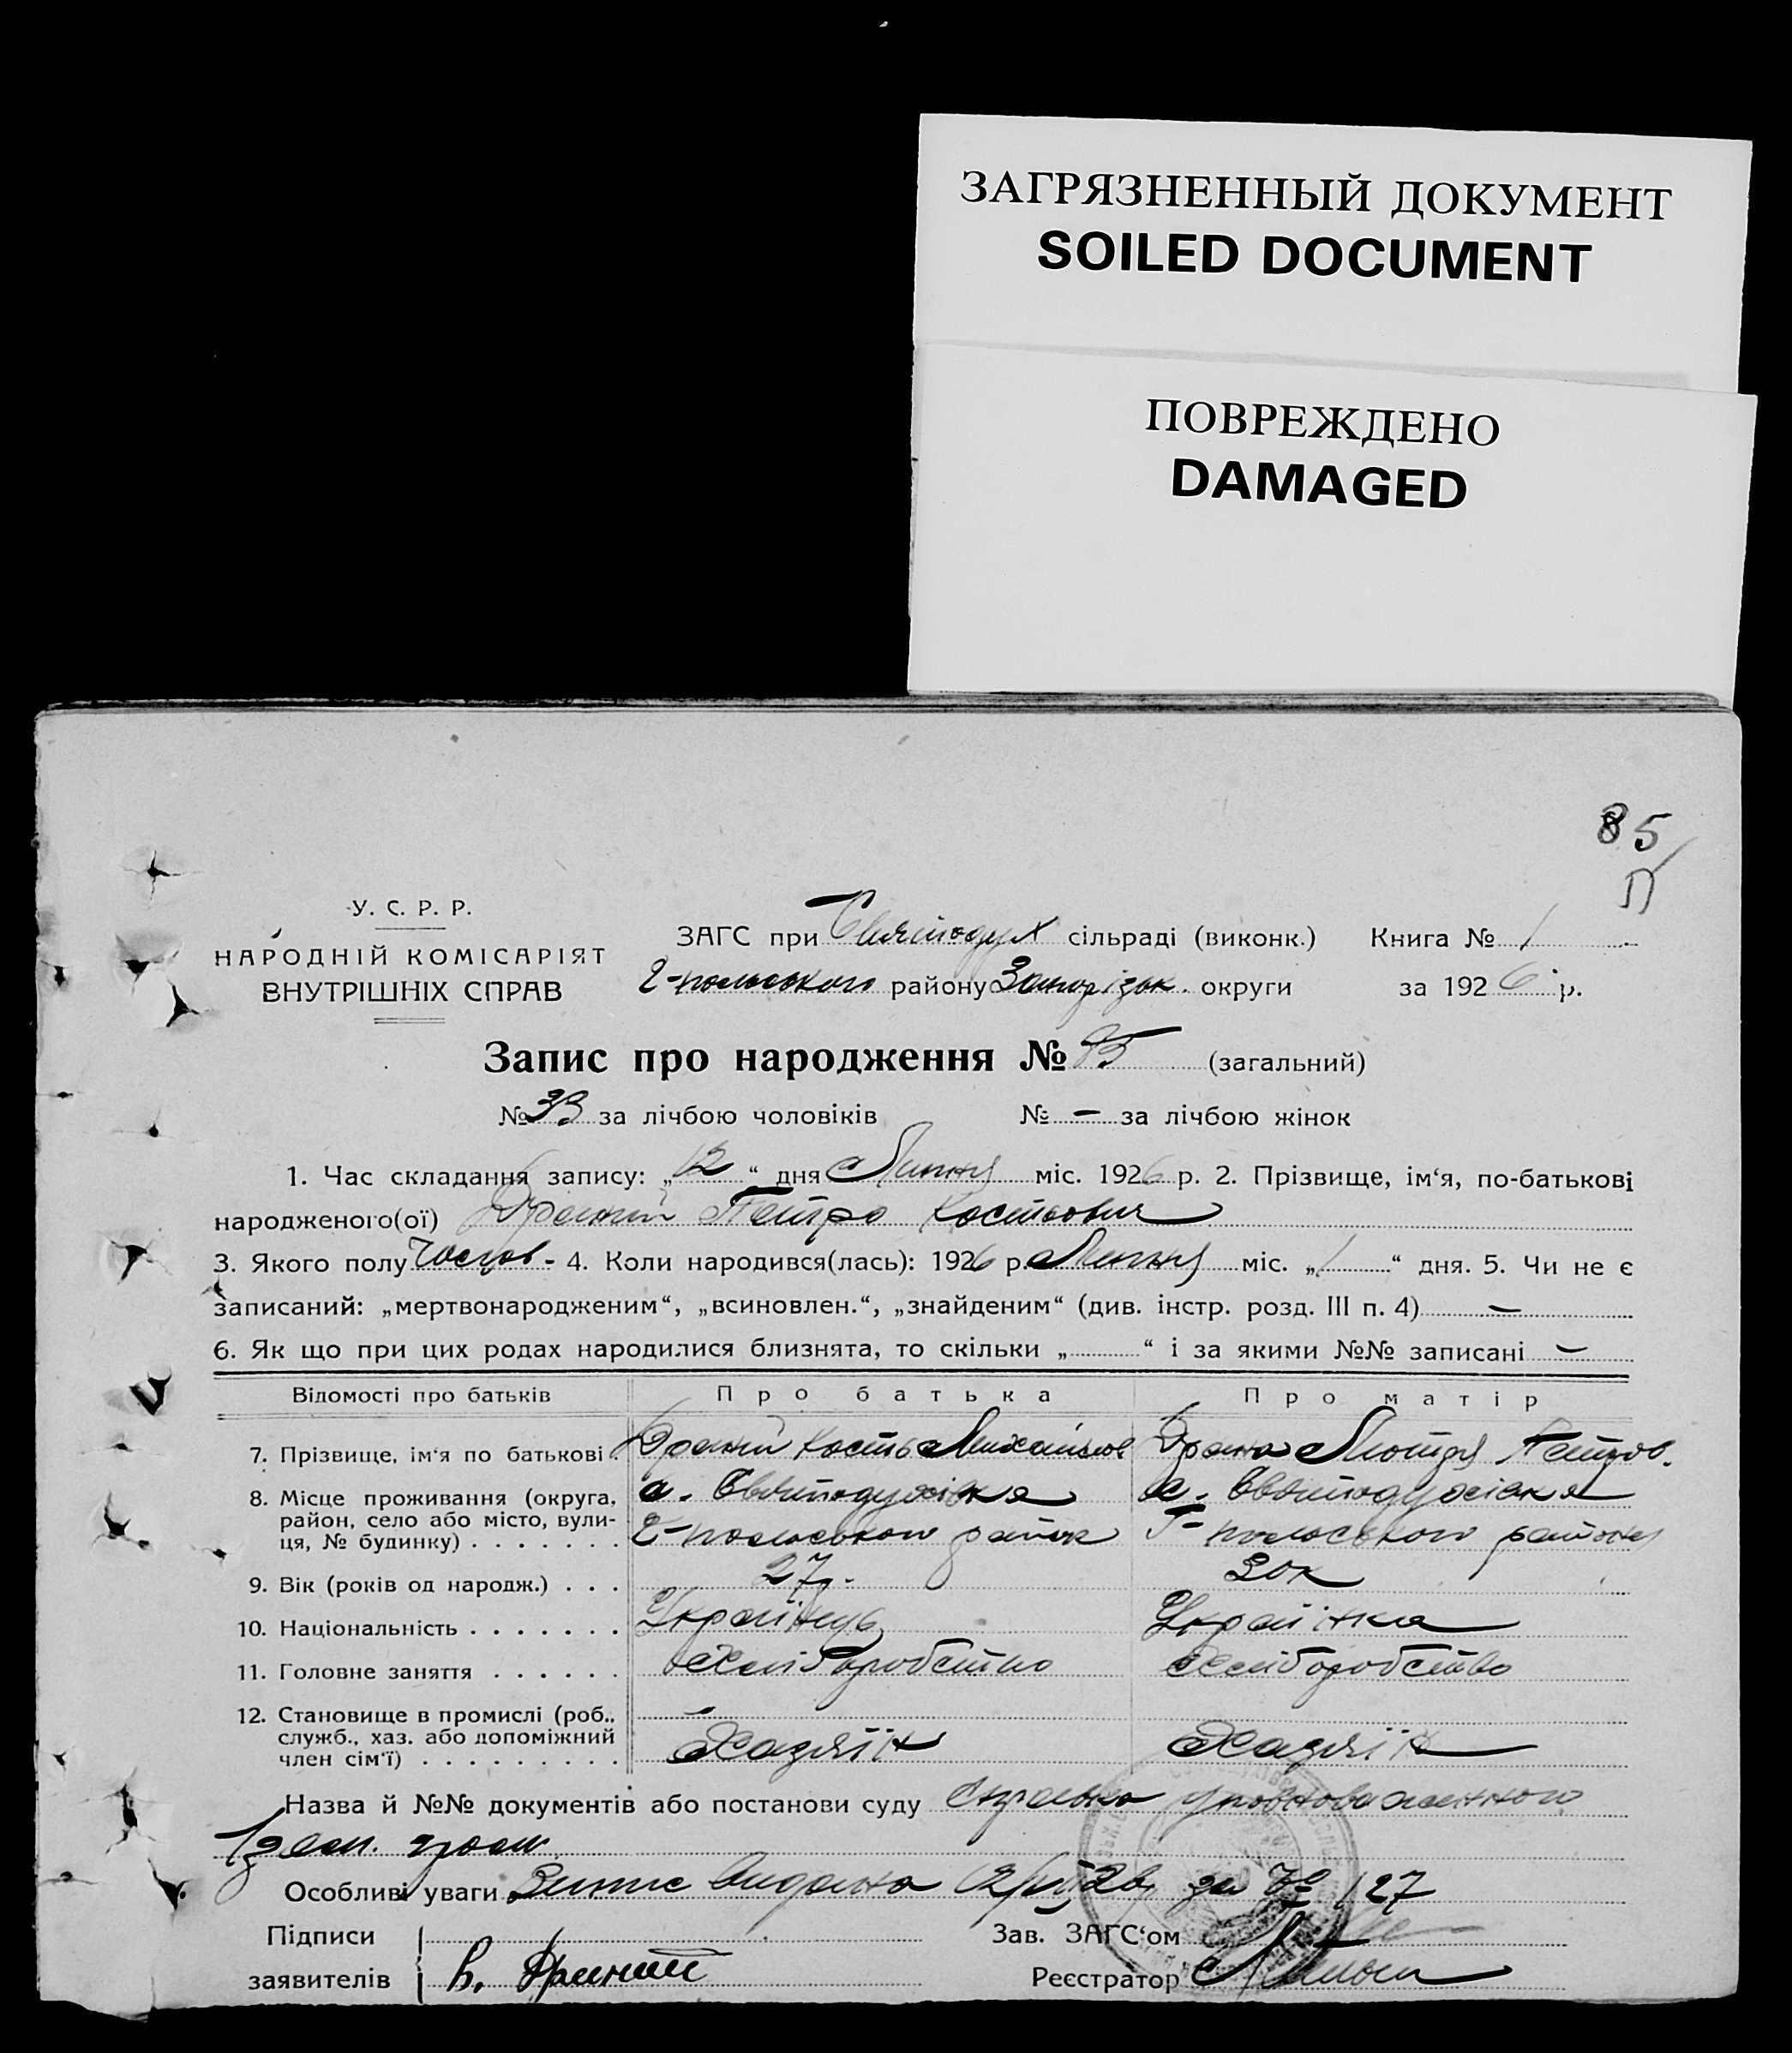 ЗАГРЯЗНЕННЫЙ ДОКУМЕНТ
SOILED DOCUMENT
ПОВРЕЖДЕНО
DAMAGED
85
П
У. С. Р. Р.
НАРОДНІЙ КОМІСАРІЯТ
ВНУТРІШНІХ СПРАВ
ЗАГС при Святодух сільраді (виконк.) Книга № 1
Г-польського району Запорізьк. округи за 1926 р.
Запис про народження № 85 (загальний)
№ 33 за лічбою чоловіків № — за лічбою жінок
1. Час складання запису: „12“ дня Липня міс. 1926 р. 2. Прізвище, ім‘я, по-батькові
народженого(ої) Драний Петро Костьович
3. Якого полу 4. Коли народився(лась): 1926 р. Липня міс. „1“ дня. 5. Чи не є
записаний: „мертвонародженим“, „всиновлен.“, „знайденим“ (див. інстр. розд. III п. 4) —
6. Як що при цих родах народилися близнята, то скільки „ “ і за якими №№ записані —
Відомості про батьків Про батька Про матір
7. Прізвище, ім‘я по батькові Драний Кость Михайлов Драна Мотря Петров.
8. Місце проживання (округа, с. Святодухівка с. Святодухівка
район, село або місто, вули-
ця, № будинку) Г-польського район Г-польського району
9. Вік (років од народж.) 27 30к
10. Національність Українць Українка
11. Головне заняття Хліборобство Хліборобство
12. Становище в промислі (роб.,
служб., хаз. або допоміжний
член сім‘ї) Хазяїн Хазяїн
Назва й №№ документів або постанови суду Справка уповноваженного
зем. гром.
Особливі уваги Випис видана за № 127
Підписи Зав. ЗАГС‘ом
заявителів Драний Реєстратор